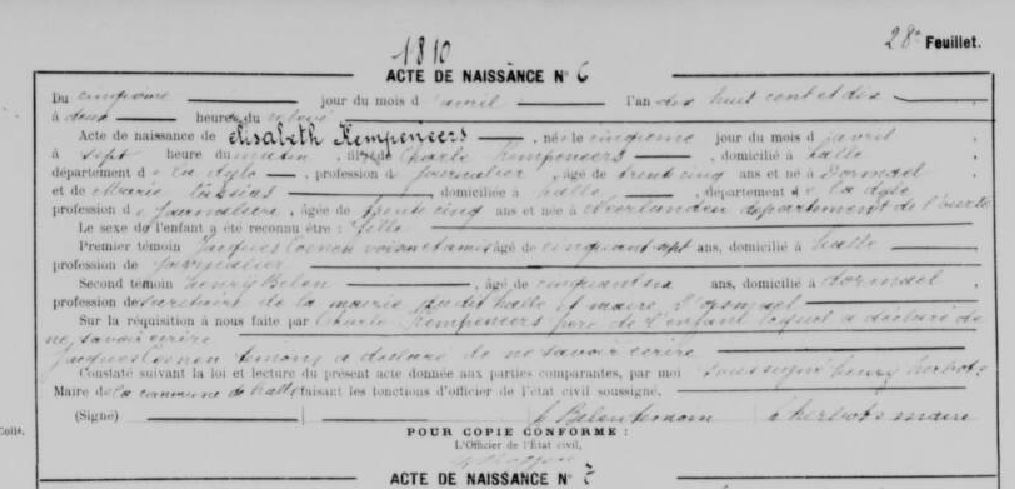 28e Feuillet.
1810
ACTE DE NAISSANCE N° 6
Du cinquième jour du mois d'avril l'an dix huit cent et dix
à deux heures du relevé
Acte de naissance de Elisabeth Kempeneers, née le cinquieme jour du mois d'avril
à sept heure du matin, de Charle Kempeneers, domicilié à halle
département de la dyle, profession de journalier, âgé de trente cinq ans et né à Dormael
et de Marie, domiciliée à halle, département de la dyle
profession de journaliere, âgée de trente cinq ans et née à Neerlanden departement de l'ourte
Le sexe de l'enfant a été reconnu être : fille
Premier témoin Jacques Coenen voisin et amis âgé de cinquant sept ans, domicilié à halle
profession de journalier
Second témoin henry Belen, âgé de cinquant six ans, domicilié à dormael
profession de secretaire de la mairie du dit halle et maire d'ormael
Sur la réquisition à nous faite par Charle Kempeneers pere de l'enfant lequel a déclaré de
ne savoir ecrire
Jacques Coenen temoing a déclaré de ne savoir ecrire
Constaté suivant la loi et lecture du présent acte donnée aux parties comparantes, par moi soussigné henry herbots
Maire de la commune de halle faisant les fonctions d'officier de l'état civil soussigné.
(Signé) h Belen temoin h herbots maire
POUR COPIE CONFORME :
L'Officier de l'État civil,
Colle.
ACTE DE NAISSANCE N° 7